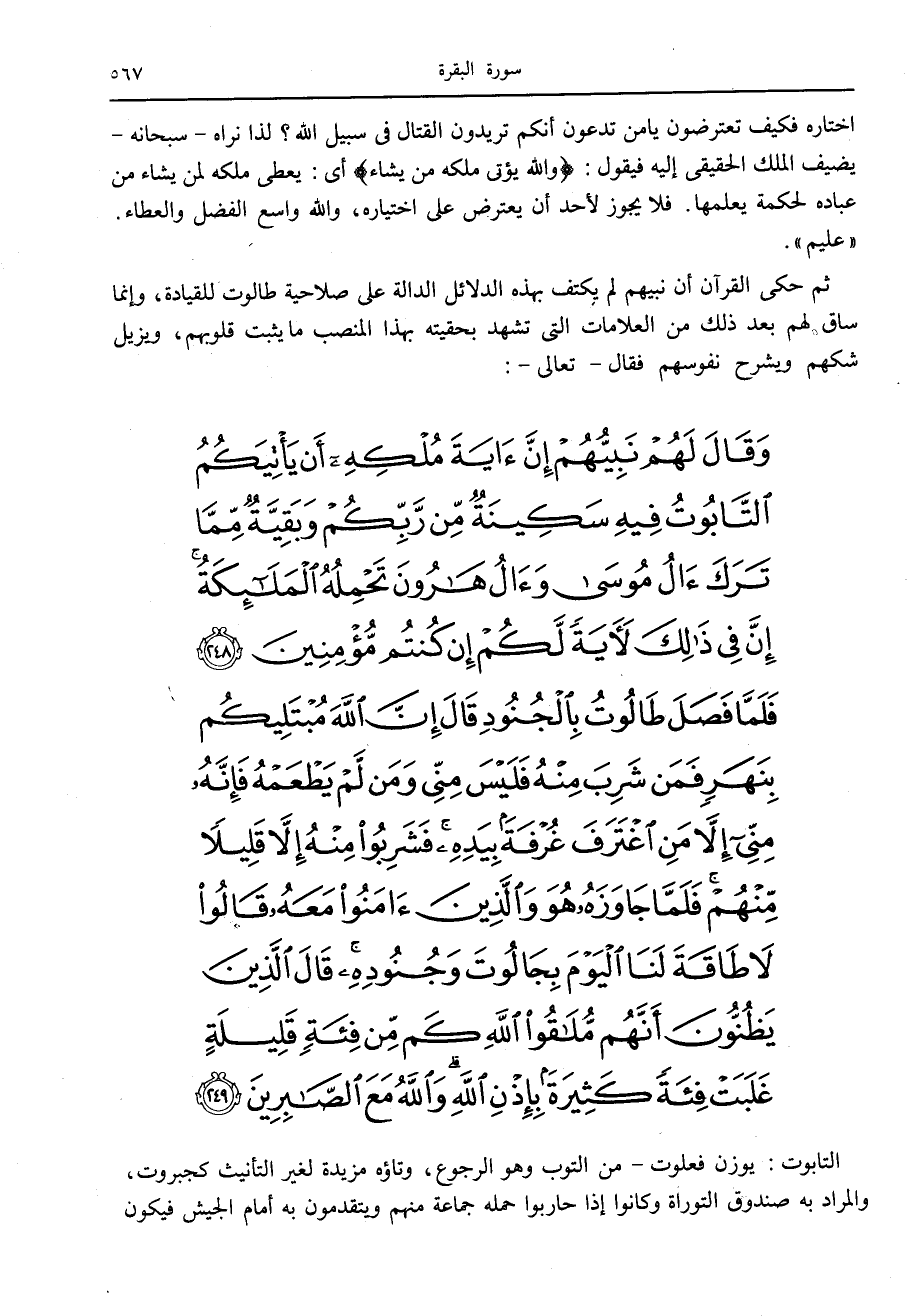 سورة البقرة
٥٦٧
اختاره فكيف تعترضون يامن تدعون أنكم تريدون القتال فى سبيل الله؟ لذا نراه – سبحانه –
يضيف الملك الحقيقى إليه فيقول : ﴿والله يؤتى ملكه من يشاء﴾ أى : يعطى ملكه لمن يشاء من
عباده لحكمة يعلمها. فلا يجوز لأحد أن يعترض على اختياره، والله واسع الفضل والعطاء.
«عليم».
ثم حكى القرآن أن نبيهم لم يكتف بهذه الدلائل الدالة على صلاحية طالوت للقيادة، وإنما
ساق لهم بعد ذلك من العلامات التى تشهد بحقيته بهذا المنصب مايثبت قلوبهم، ويزيل
شكهم ويشرح نفوسهم فقال – تعالى – :
وَقَالَ لَهُمْ نَبِيُّهُمْ إِنَّ ءَايَةَ مُلْكِهِۦٓ أَن يَأْتِيَكُمُ
ٱلتَّابُوتُ فِيهِ سَكِينَةٌ مِّن رَّبِّكُمْ وَبَقِيَّةٌ مِّمَّا
تَرَكَ ءَالُ مُوسَىٰ وَءَالُ هَٰرُونَ تَحْمِلُهُ ٱلْمَلَٰٓئِكَةُ ۚ
إِنَّ فِى ذَٰلِكَ لَءَايَةً لَّكُمْ إِن كُنتُم مُّؤْمِنِينَ ﴿٢٤٨﴾
فَلَمَّا فَصَلَ طَالُوتُ بِٱلْجُنُودِ قَالَ إِنَّ ٱللَّهَ مُبْتَلِيكُم
بِنَهَرٍ فَمَن شَرِبَ مِنْهُ فَلَيْسَ مِنِّى وَمَن لَّمْ يَطْعَمْهُ فَإِنَّهُۥ
مِنِّىٓ إِلَّا مَنِ ٱغْتَرَفَ غُرْفَةًۢ بِيَدِهِۦ ۚ فَشَرِبُوا۟ مِنْهُ إِلَّا قَلِيلًا
مِّنْهُمْ ۚ فَلَمَّا جَاوَزَهُۥ هُوَ وَٱلَّذِينَ ءَامَنُوا۟ مَعَهُۥ قَالُوا۟
لَا طَاقَةَ لَنَا ٱلْيَوْمَ بِجَالُوتَ وَجُنُودِهِۦ ۚ قَالَ ٱلَّذِينَ
يَظُنُّونَ أَنَّهُم مُّلَٰقُوا۟ ٱللَّهِ كَم مِّن فِئَةٍ قَلِيلَةٍ
غَلَبَتْ فِئَةً كَثِيرَةًۢ بِإِذْنِ ٱللَّهِ ۗ وَٱللَّهُ مَعَ ٱلصَّٰبِرِينَ ﴿٢٤٩﴾
التابوت : يوزن فعلوت – من التوب وهو الرجوع، وتاؤه مزيدة لغير التأنيث كجبروت،
والمراد به صندوق التوراة وكانوا إذا حاربوا حمله جماعة منهم ويتقدمون به أمام الجيش فيكون